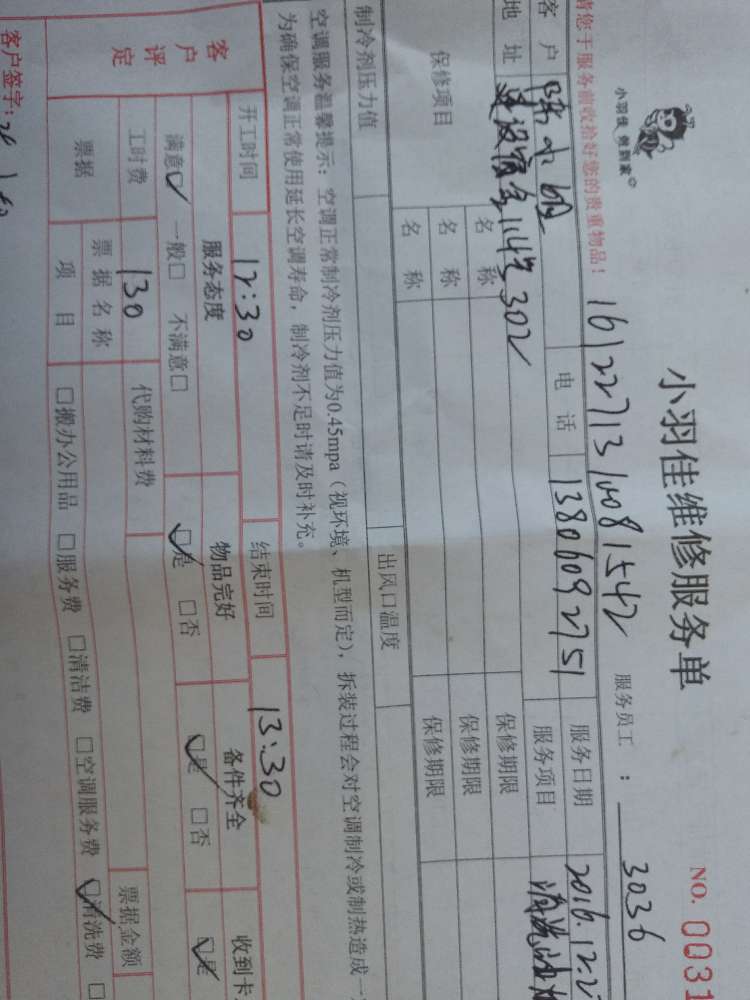 小羽佳 到家
小羽佳维修服务单
NO. 0031
您于服务前收拾好您的贵重物品！
1612271310081542
服务员工 ： 3036
客户 电话 13806092751 服务日期 2016.12.2
地址 302 服务项目
保修项目 名称 保修期限
名称 保修期限
名称 保修期限
制冷剂压力值 出风口温度
空调服务温馨提示：空调正常制冷剂压力值为0.45mpa（视环境、机型而定），拆装过程会对空调制冷或制热造成一
为确保空调正常使用延长空调寿命，制冷剂不足时请及时补充。
开工时间 12:30 结束时间 13:30
客户评定 服务态度 物品完好 备件齐全 收到卡
满意☑ 一般□ 不满意□ ☑是 □否 ☑是 □否 ☑是
工时费 130 代购材料费
票据 票据名称 票据金额
项目 □搬办公用品 □服务费 □清洁费 □空调服务费 ☑清洗费 □
客户签字：